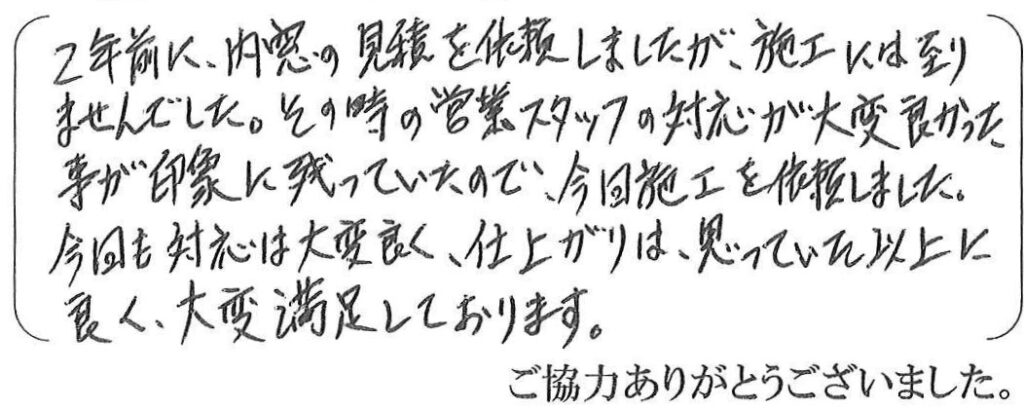 2年前に、内窓の見積を依頼しましたが、施工には至り
ませんでした。その時の営業スタッフの対応が大変良かった
事が印象に残っていたので、今回施工を依頼しました。
今回も対応は大変良く、仕上がりは、思っていた以上に
良く、大変満足しております。
ご協力ありがとうございました。